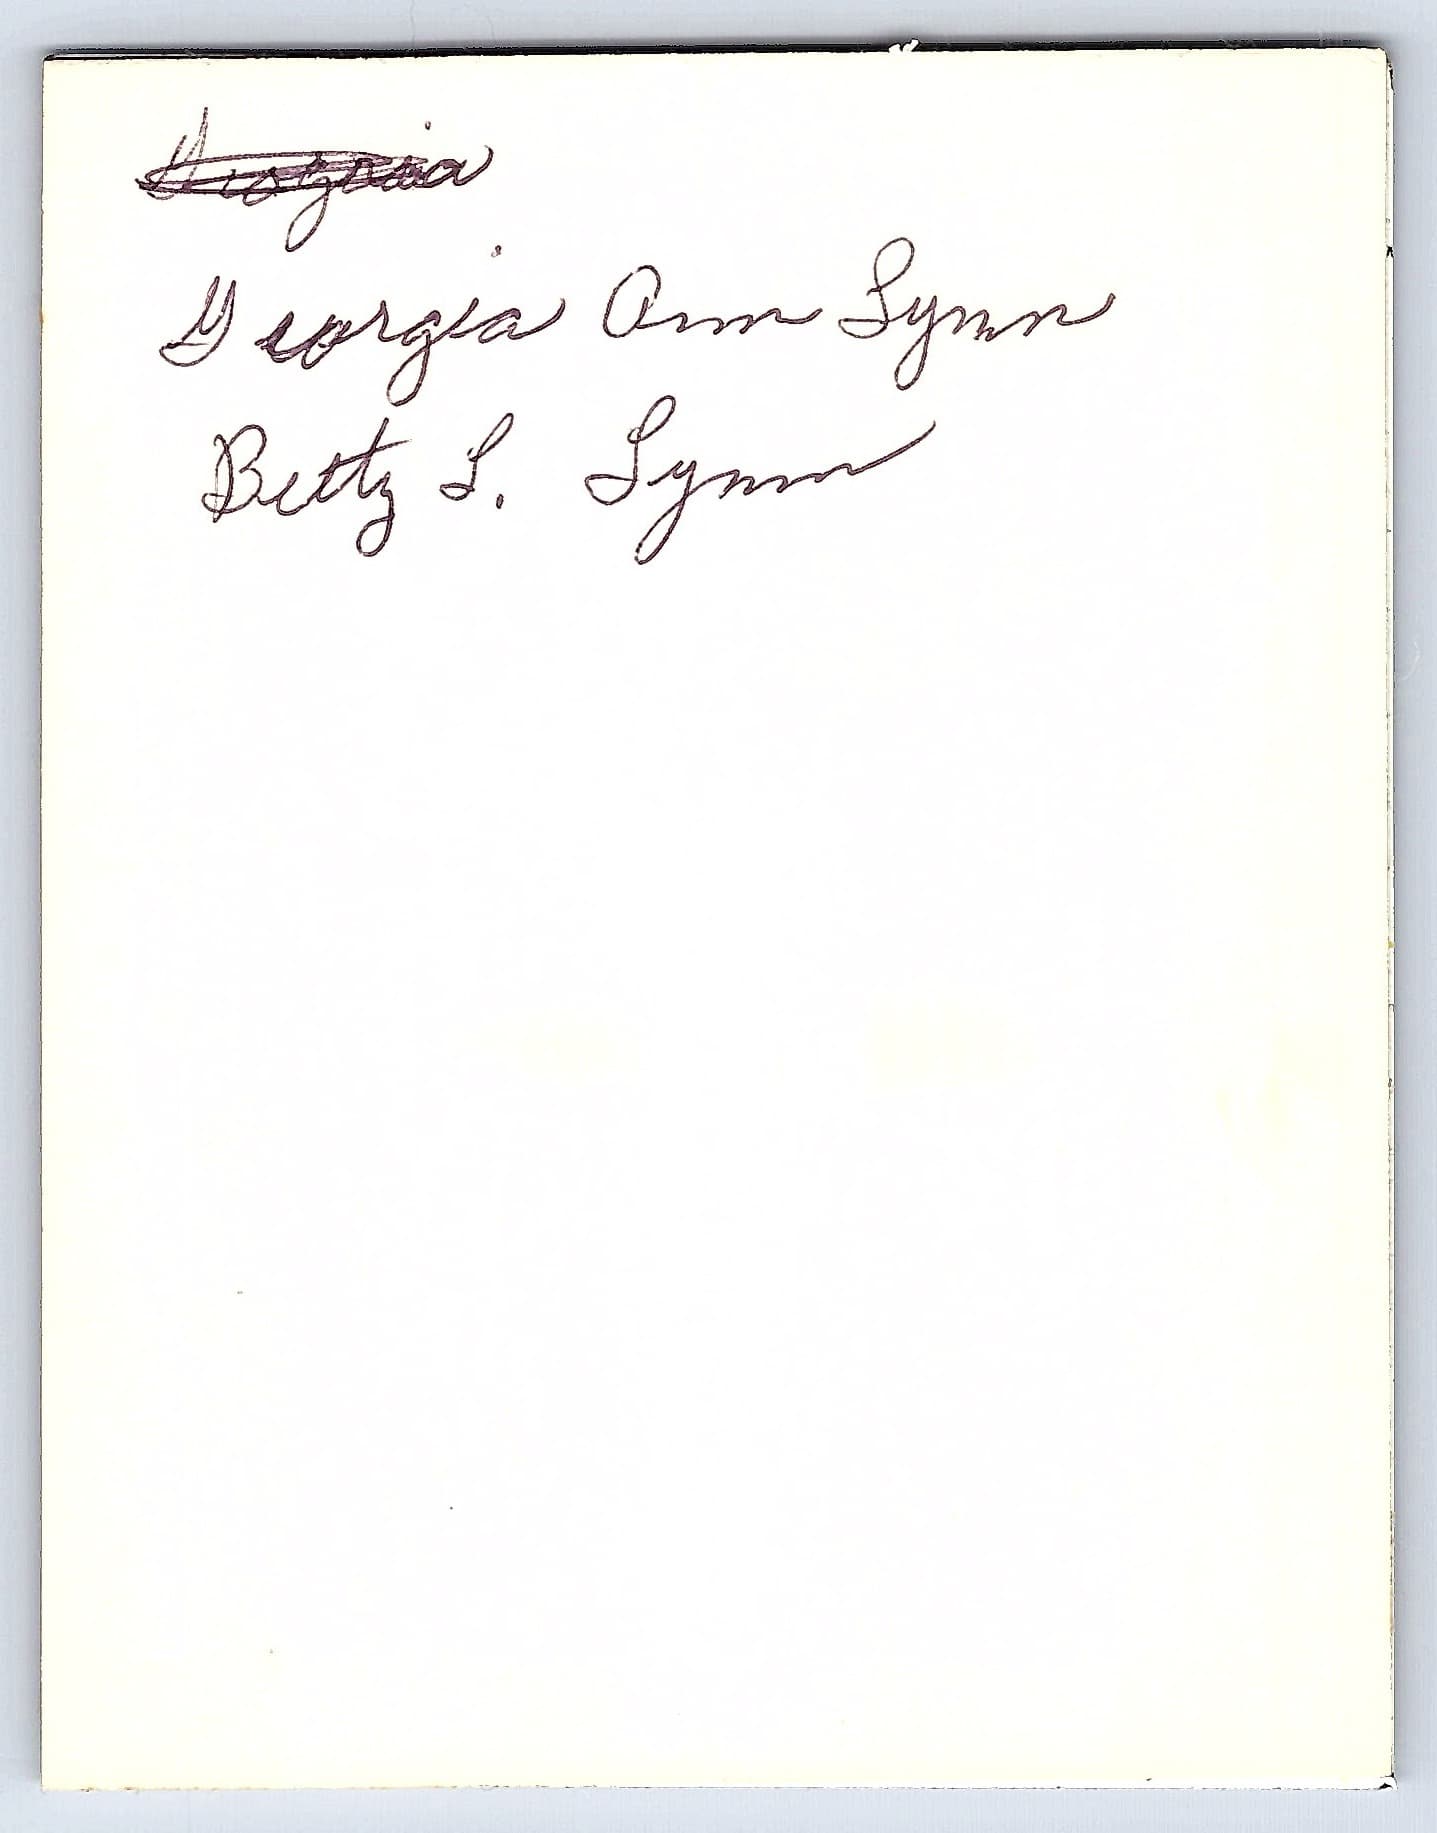 Georgia Ann Lynn
Betty L. Lynn